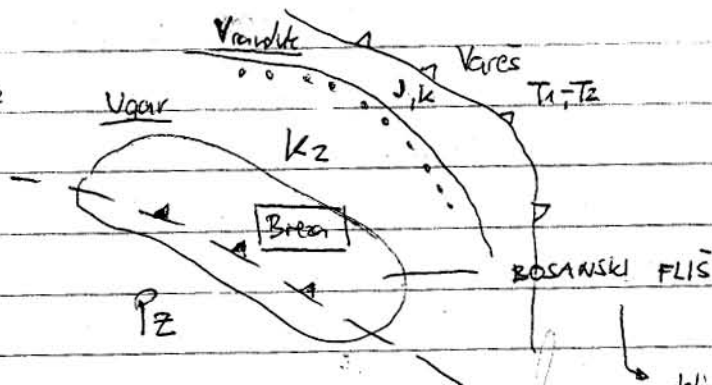 Vranduk
Vareš
Ugar
J,K
T1-T2
K2
Breza
BOSANSKI FLIŠ
Pz